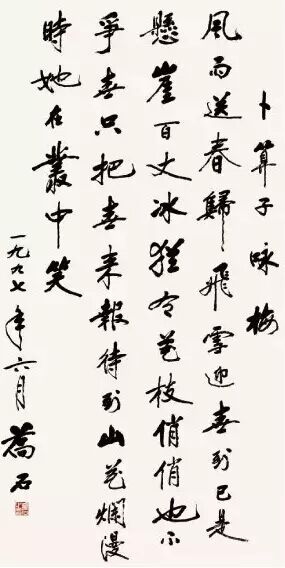 卜算子 咏梅
風雨送春歸飛雪迎春到已是
懸崖百丈冰猶有花枝俏俏也不
爭春只把春來報待到山花爛漫
時她在叢中笑
一九九七年六月 喬石